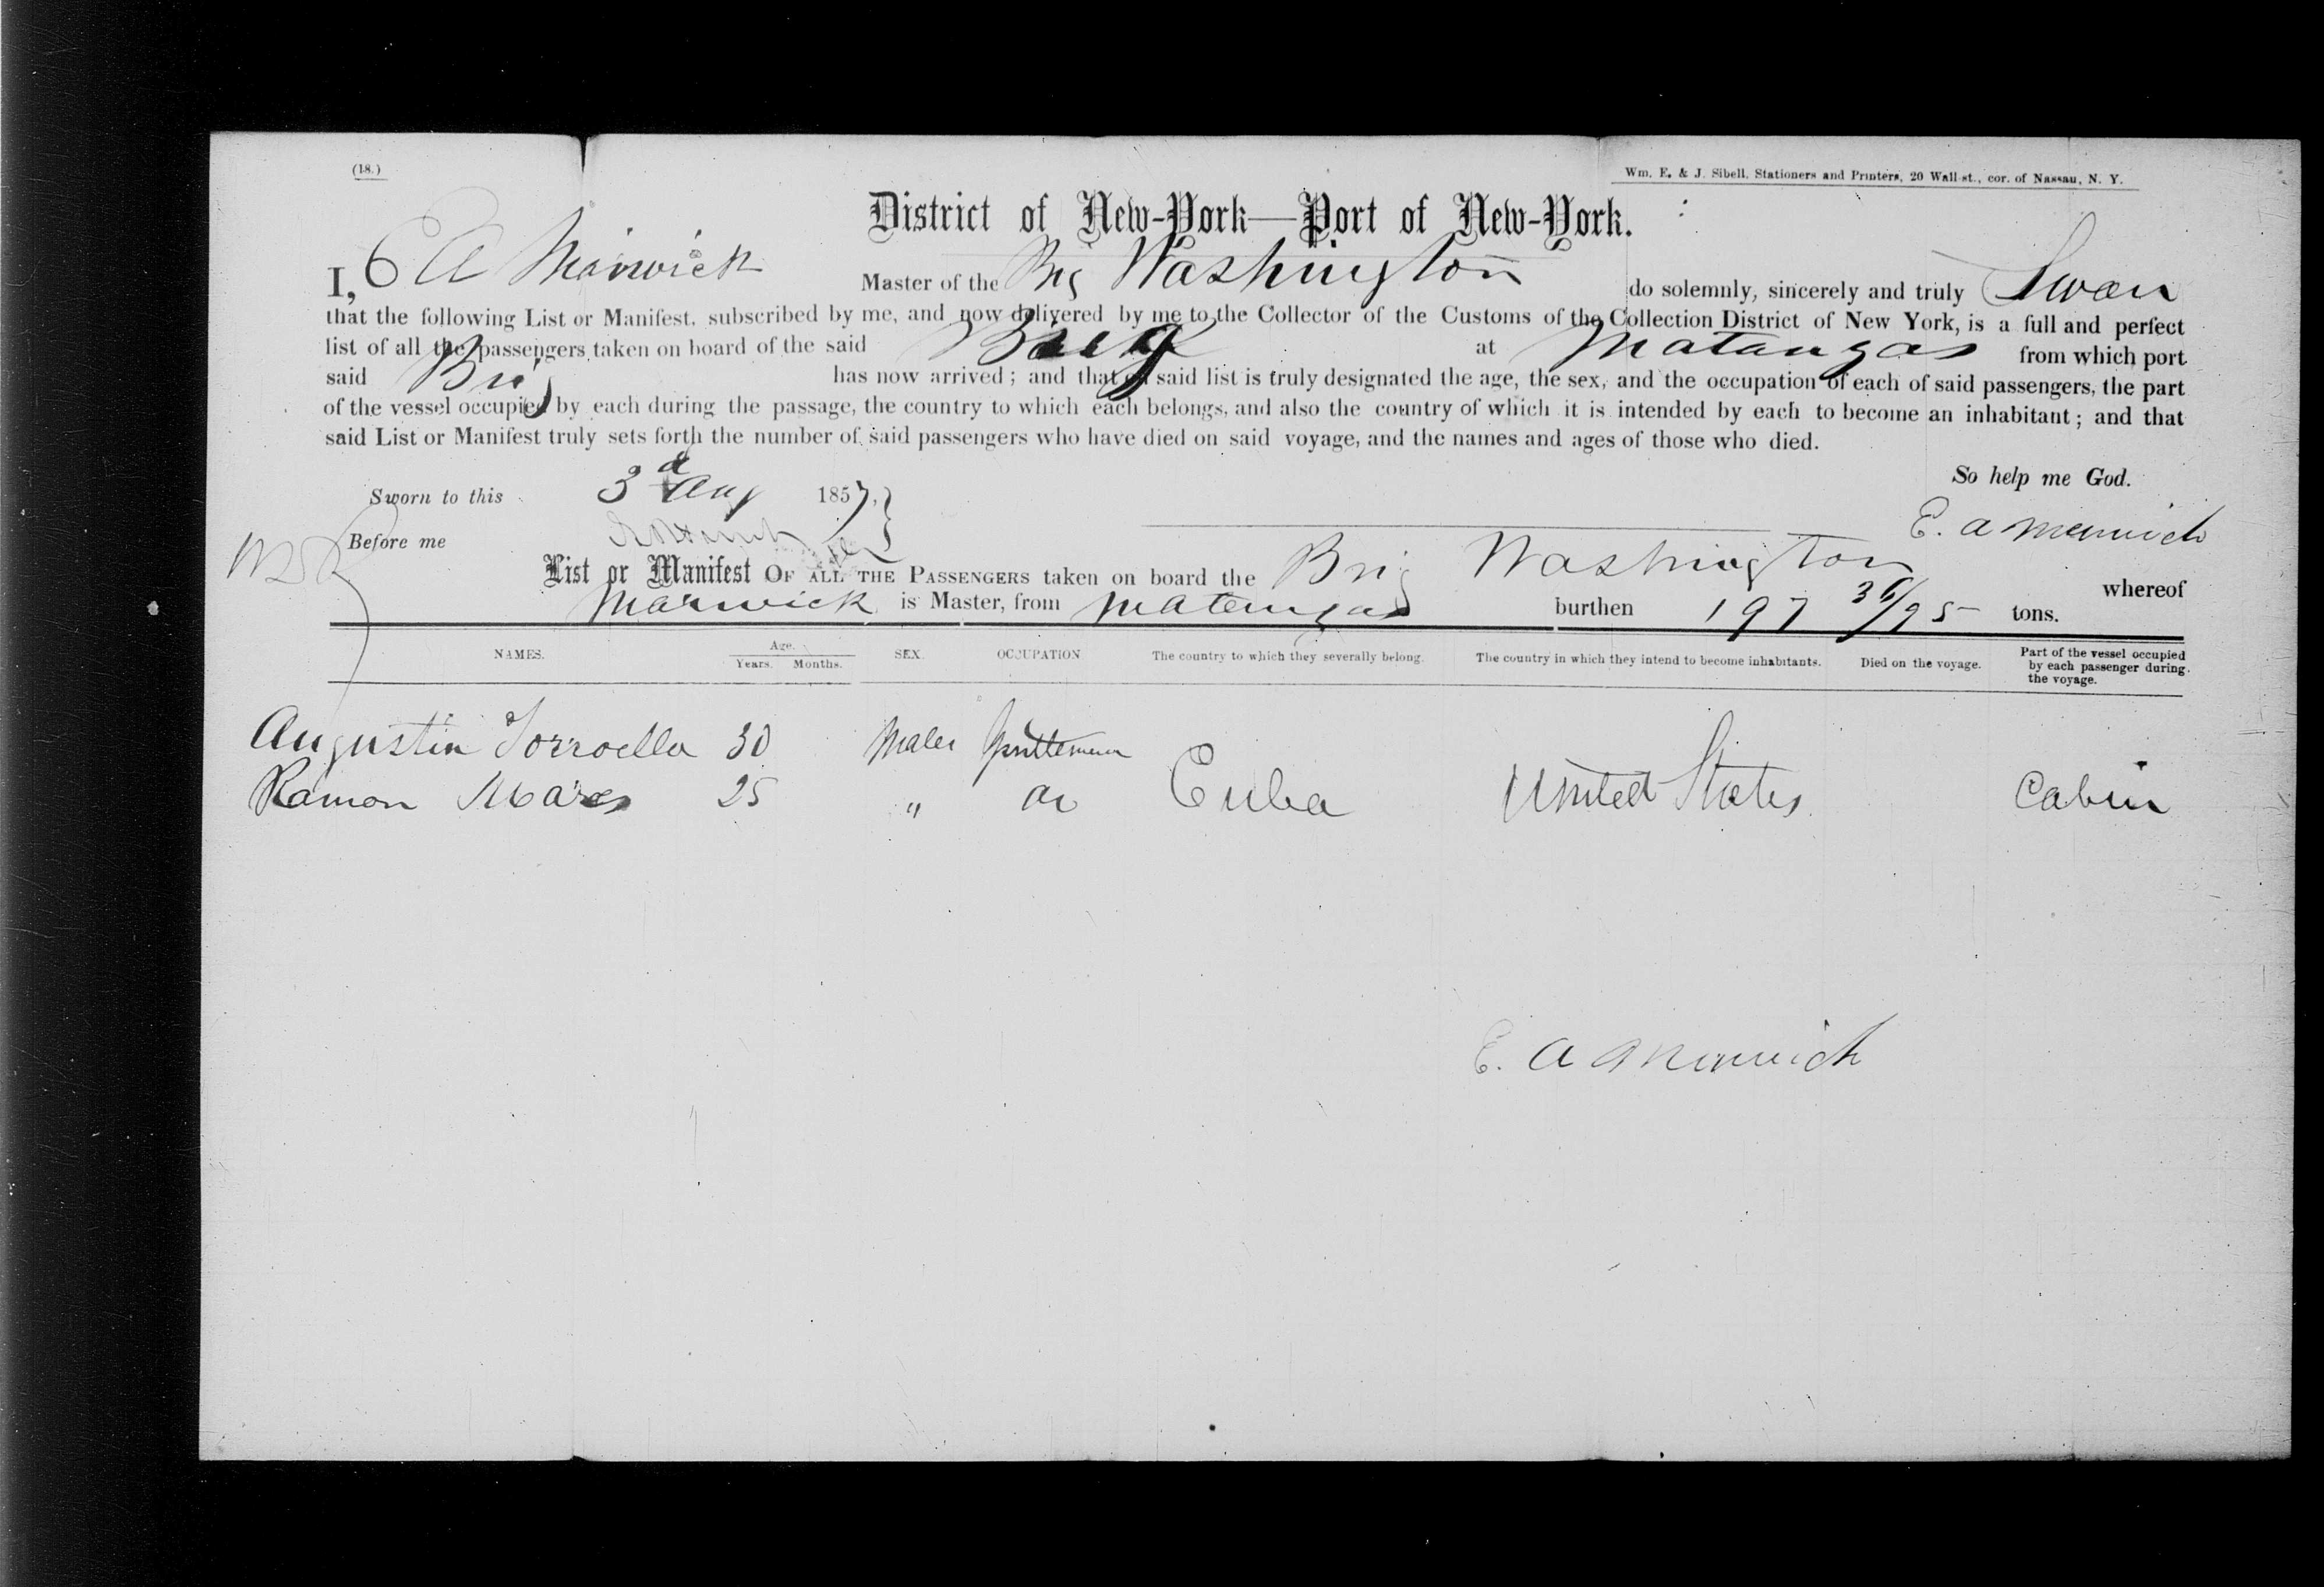 (18.)
Wm. E. & J. Sibell, Stationers and Printers, 20 Wall-st., cor. of Nassau, N. Y.
District of New-York—Port of New-York.
I, E A Marwick Master of the Brig Washington do solemnly, sincerely and truly Swear
that the following List or Manifest, subscribed by me, and now delivered by me to the Collector of the Customs of the Collection District of New York, is a full and perfect
list of all the passengers taken on board of the said Brig at Matanzas from which port
said Brig has now arrived; and that on said list is truly designated the age, the sex, and the occupation of each of said passengers, the part
of the vessel occupied by each during the passage, the country to which each belongs, and also the country of which it is intended by each to become an inhabitant; and that
said List or Manifest truly sets forth the number of said passengers who have died on said voyage, and the names and ages of those who died.
So help me God.
Sworn to this 3d Aug 1857,
E. A Marwick
Before me
List or Manifest OF ALL THE PASSENGERS taken on board the Brig Washington whereof
Marwick is Master, from Matanzas burthen 197 36/95 tons.
NAMES. Age. Years. Months. SEX. OCCUPATION The country to which they severally belong. The country in which they intend to become inhabitants. Died on the voyage. Part of the vessel occupied by each passenger during the voyage.
Augustin Torroella 30 Males Gentleman
Ramon Mares 25 " do Cuba United States Cabin
E. A Marwick